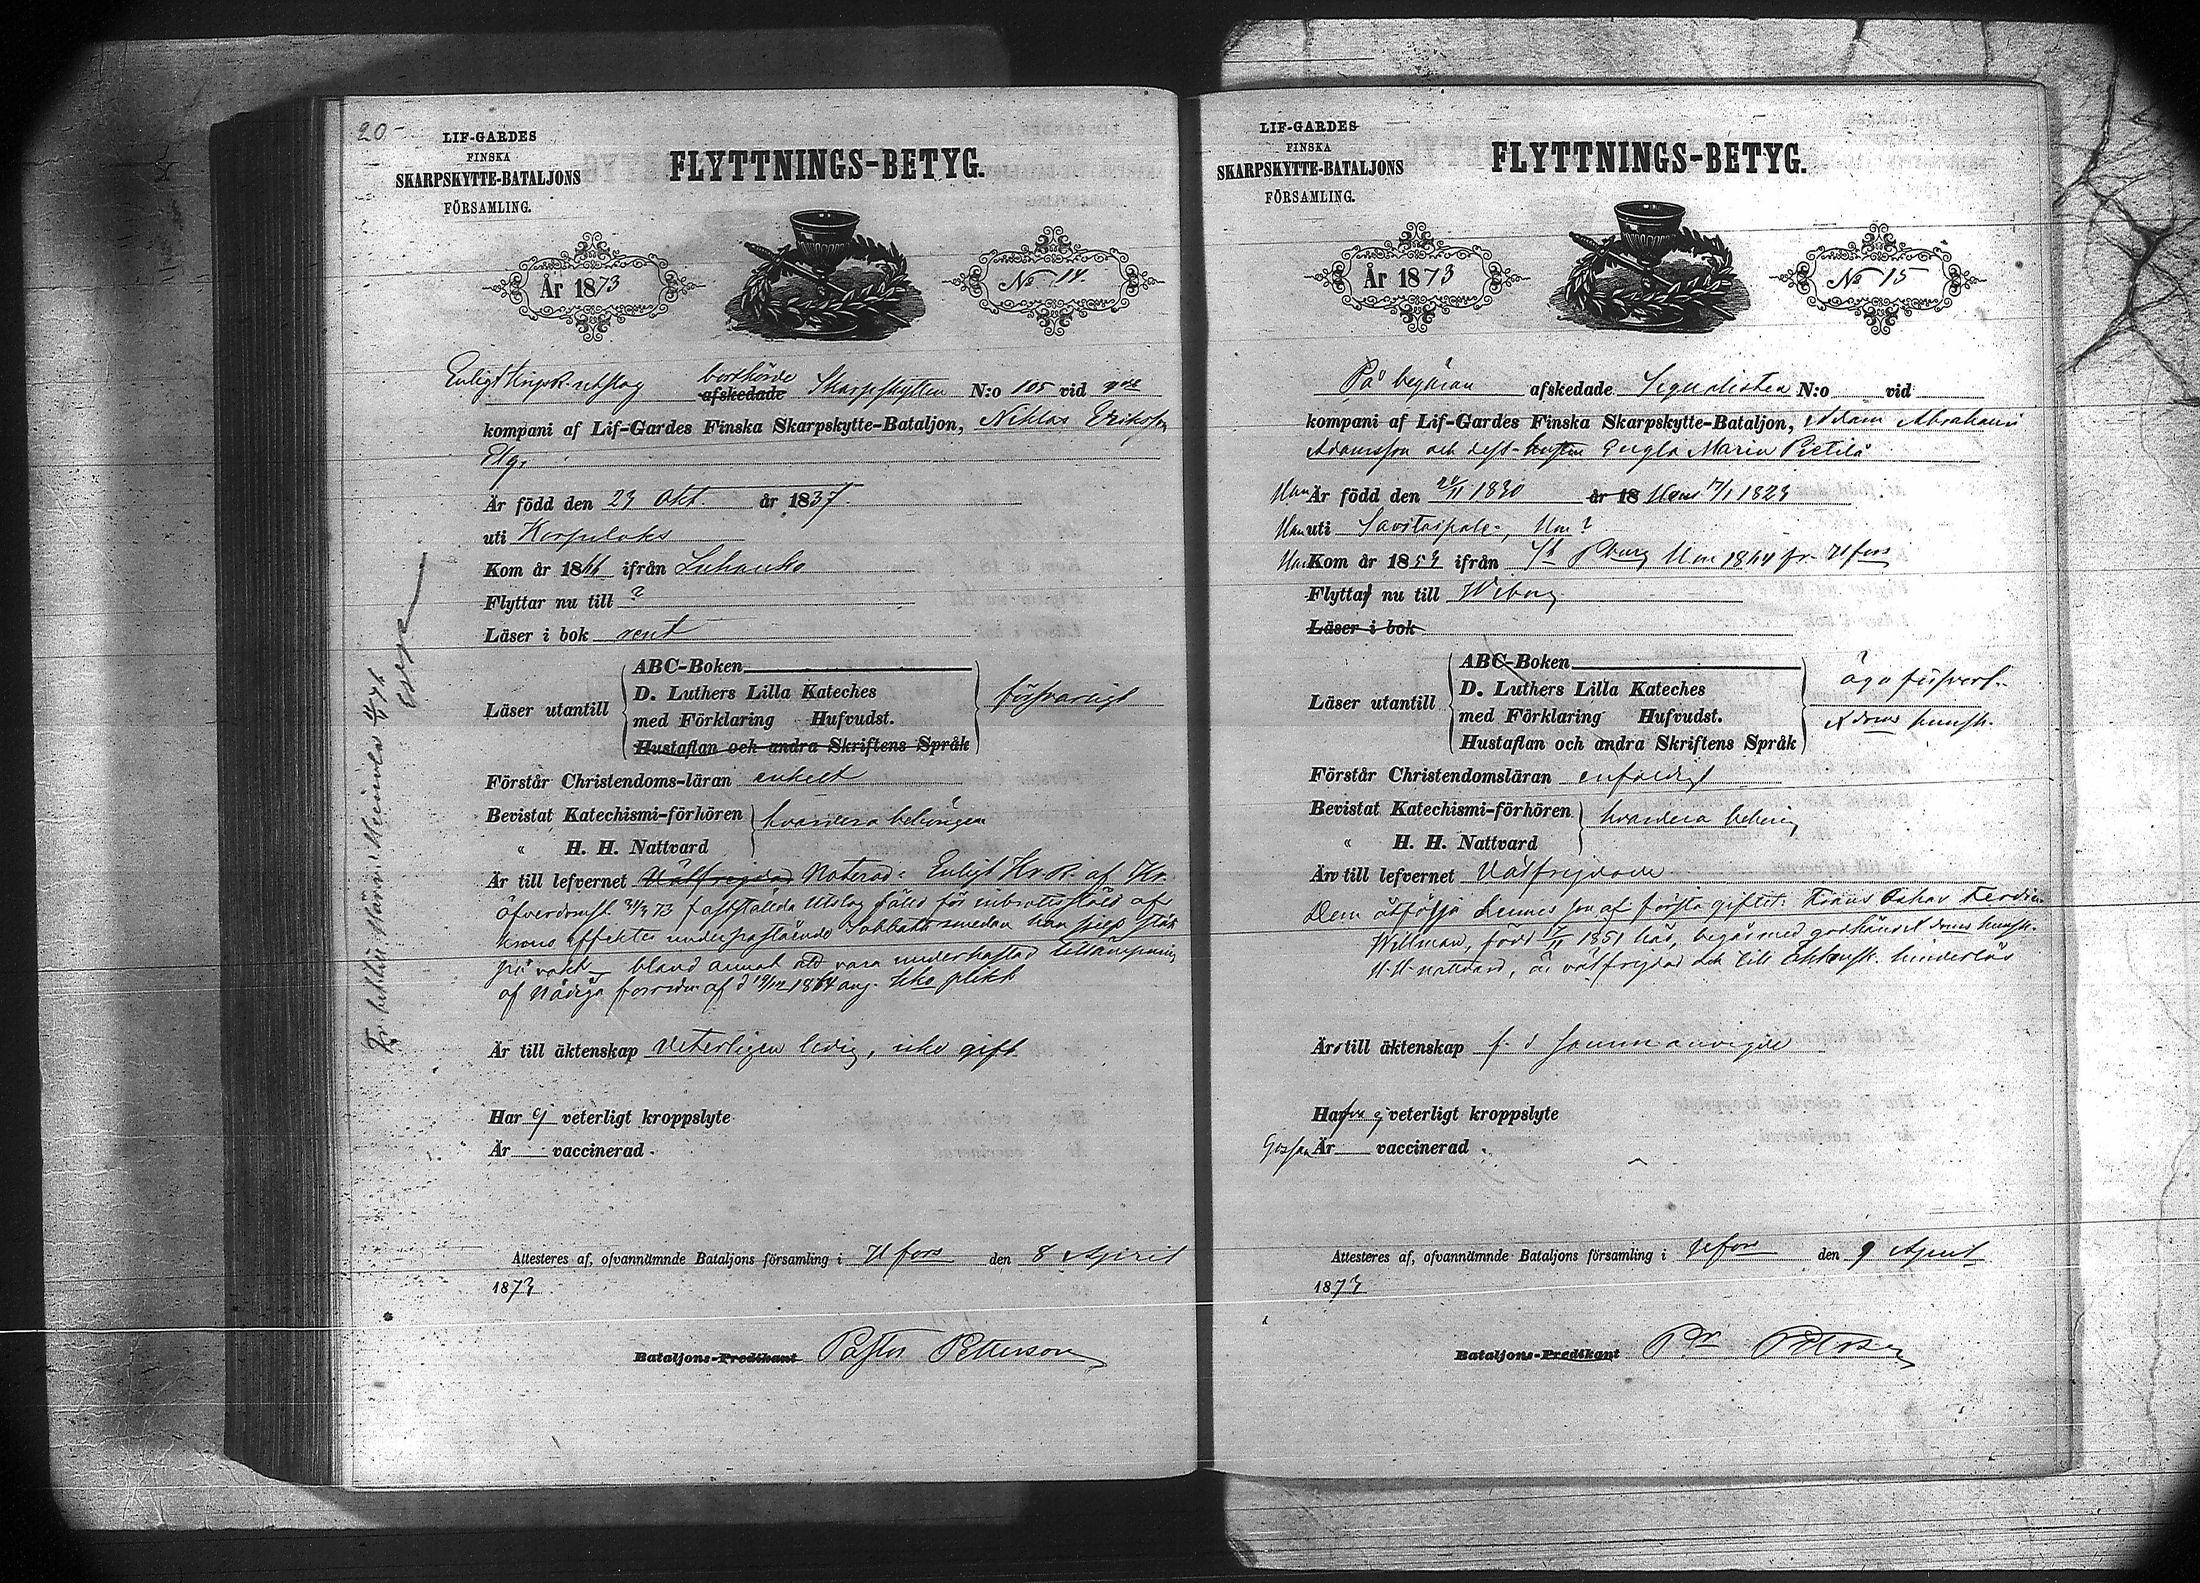 20
LIF-GARDES
FINSKA
SKARPSKYTTE-BATALJONS
FÖRSAMLING.
FLYTTNINGS-BETYG.
År 1873
No 14.
Enligt utslag bortkörde afskedade Skarpskytten N:o 105 vid
kompani af Lif-Gardes Finska Skarpskytte-Bataljon, Niklas Eriksson
Elg.
Är född den 23 Okt. år 1837.
uti Korpilaks
Kom år 1866 ifrån Luhanko
Flyttar nu till ?
Läser i bok rent
Läser utantill
ABC-Boken
D. Luthers Lilla Kateches
med Förklaring Hufvudst.
Hustaflan och andra Skriftens Språk
försvarligt
Förstår Christendoms-läran enkelt
Bevistat Katechismi-förhören
" H. H. Nattvard
hvardera behörigen
Är till lefvernet Välfrejdad Noterad: Enligt Kr. R. af Kr.
öfverdomst. 31/3 73 fastställda Utslag fälld för inbrottsstöld af
krono effekter medan han sjelf
på vakt bland annat att vara underkastad tillämpning
af Nådiga af d 19/12 1864 ang.
Är till äktenskap Veterligen ledig, icke gift
Har ej veterligt kroppslyte
Är vaccinerad.
Attesteres af, ofvannämnde Bataljons församling i Hfors den 8 April
1873
Bataljons-Predikant Pastor Petterson
LIF-GARDES
FINSKA
SKARPSKYTTE-BATALJONS
FÖRSAMLING.
FLYTTNINGS-BETYG.
År 1873
No 15
På begäran afskedade Signalisten N:o vid
kompani af Lif-Gardes Finska Skarpskytte-Bataljon, Adam Abraham
Adamsson och dess hustru Engla Maria Pietilä
Han Är född den 24/11 1830 år 18 Hon 17/1 1823
Han uti Savitaipale, Hon ?
Han Kom år 1853 ifrån St Pburg Hon 1864 fr. Hfors
Flytta nu till Wiborg
Läser i bok
Läser utantill
ABC-Boken
D. Luthers Lilla Kateches
med Förklaring Hufvudst.
Hustaflan och andra Skriftens Språk
äga försvarl.
kunsk.
Förstår Christendomsläran enfaldigt
Bevistat Katechismi-förhören
" H. H. Nattvard
hvardera behörig
Äro till lefvernet Välfrejdade
Dem åtföljer hennes son af första giftet: Frans Oskar Ferdin.
Willman, född 1851 här, begår med godkänd kunsk.
H. H. nattvard, är välfrejdad och till äktensk. hinderlös
Äro till äktenskap
Hafva ej veterligt kroppslyte
Gossen Är vaccinerad.
Attesteres af, ofvannämnde Bataljons församling i Hfors den 9 April
1873
Bataljons-Predikant Pr Petterson